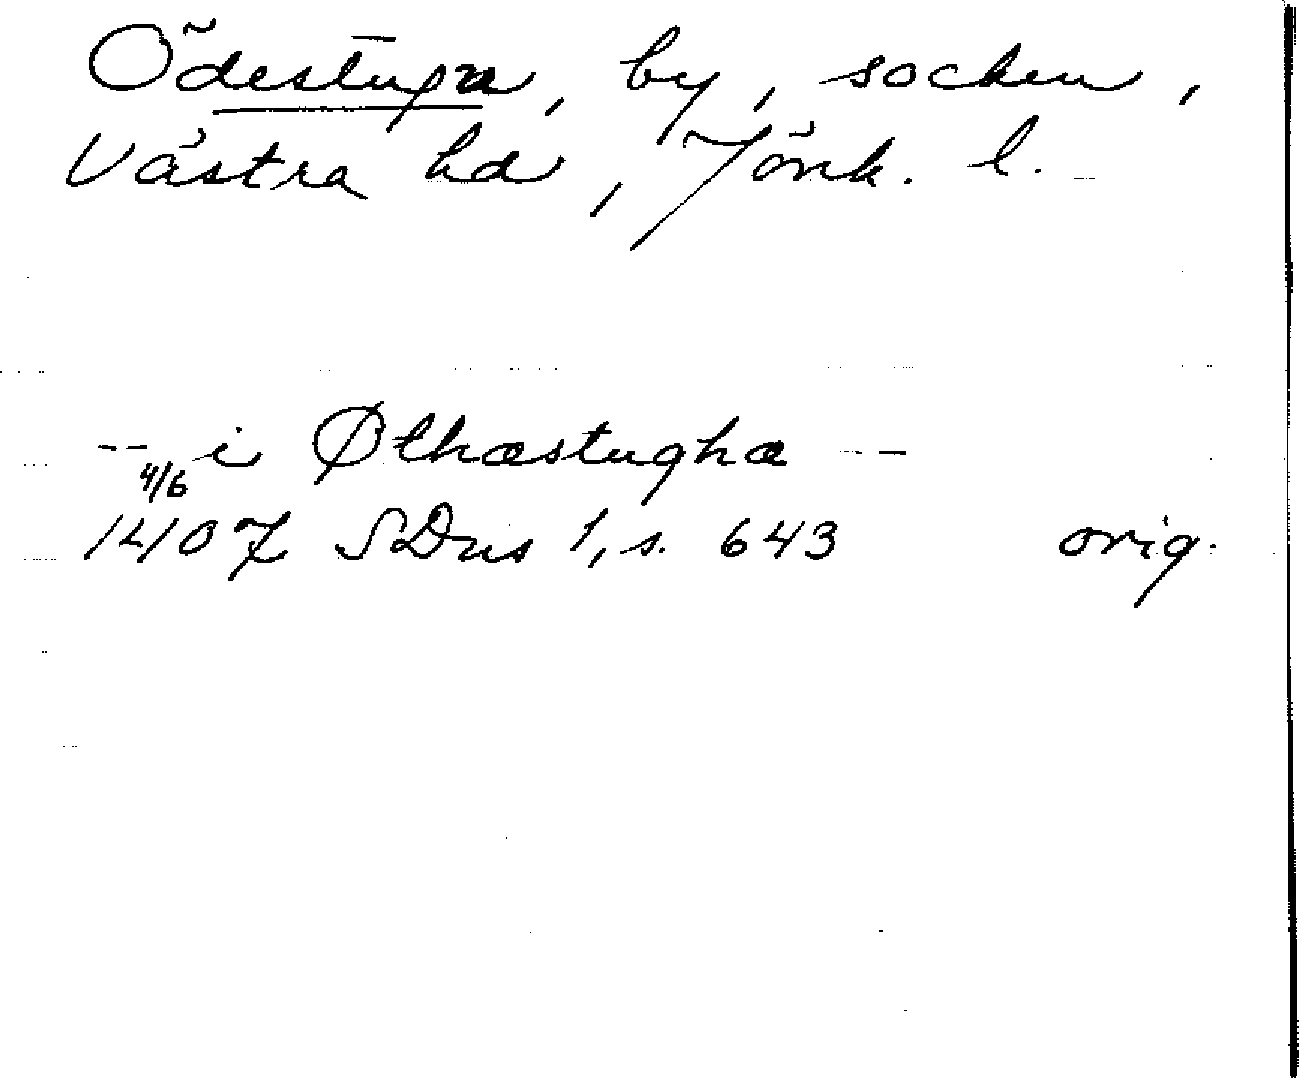 Ödestugu, by, socken,
Västra hd, Jönk. l.
-- i Øthæstugha --
4/6
1407 SDns 1, s. 643 orig.